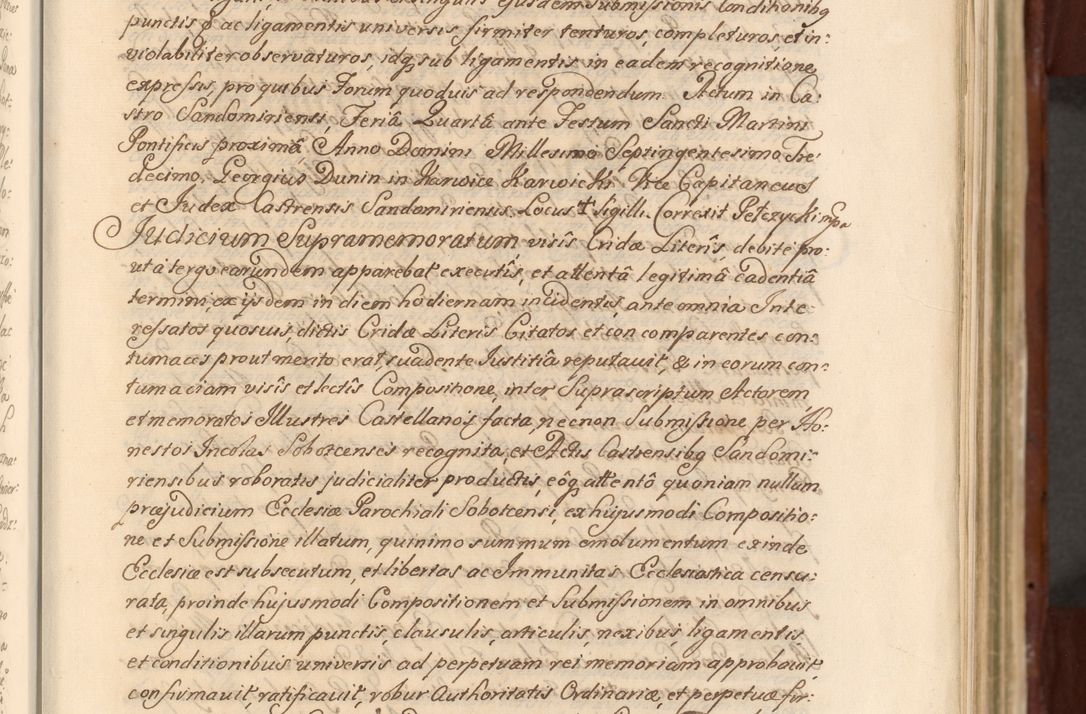 punctis & ac ligamentis universis firmiter tenturos, completuros, et in-
violabiliter observaturos, idq, sub ligamentis in eadem recognitione,
expressis, pro quibus Forum quoduis ad respondendum. Actum in Ca:
stro Sandomiriensi, Feriâ Quartâ ante Festum Sancti Martini
Pontificis proximâ Anno Domini Millesimo Septingentesimo Tre:
decimo. Georgius Dunin in Karwice Karwicki Vice Capitaneus
et Judex Castrensis Sandomiriensis. Locus + Sigilli. Correxit Pełczycki mpa
Judicium Supramemoratum visis Cridæ Literis debite pro:
ut à tergo earundem apparebat executis, et attentâ legitimâ cadentiâ
termini, ex ijsdem in diem hodiernam incidentis, ante omnia Inte:
ressatos quosuis, dictis Cridæ Literis Citatos et con comparentes con:
tumaces prout merito erat, suadente Justitiâ reputavit, & in eorum con:
tumaciam visis et lectis Compositione, inter Suprascriptum Actorem,
et memoratos Illustres Castellanos facta, necnon Submissione per Ho:
nestos Incolas Sobotcenses recognita, et Actis Castrensibq Sandomi:
riensibus roboratis judicialiter productis, eôq attentô quoniam nullum
præjudicium Ecclesiæ Parochiali Sobotcensi, ex hujusmodi Compositio:
ne et Submissione illatum, quinimo summum emolumentum exinde
Ecclesiæ est subsecutum, et libertas ac Immunitas Ecclesiastica censu:
rata, proinde hujusmodi Compositionem et Submissionem in omnibus
et singulis illarum punctis, clausulis, articulis, nexibus ligamentis,
et conditionibus universis ad perpetuam rei memoriam approbavit,
confirmavit, ratificavit, robur Authoritatis Ordinariæ, et perpetuæ fir: